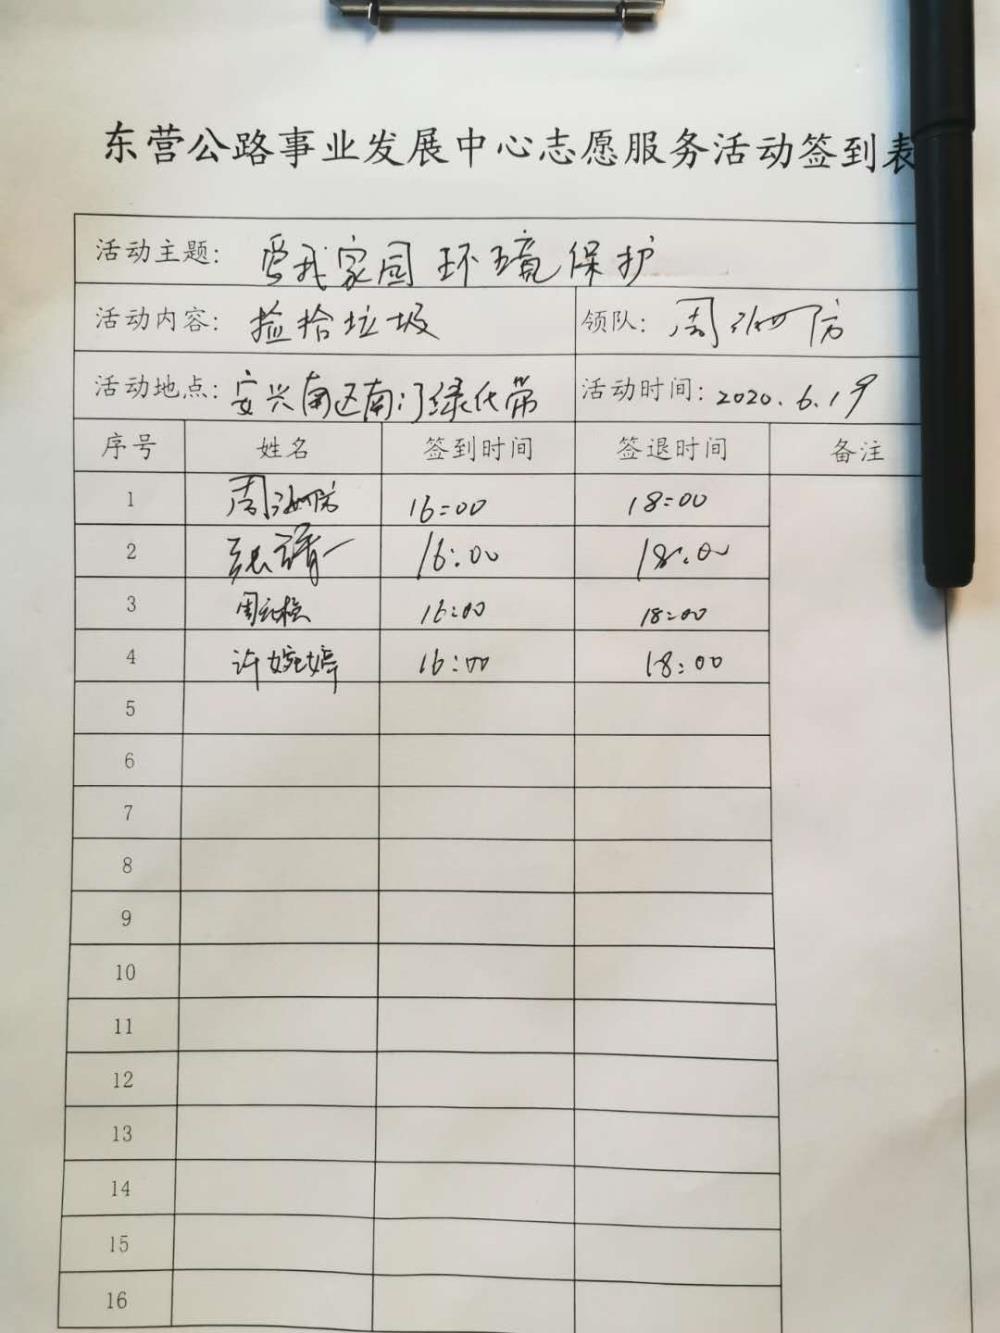 东营公路事业发展中心志愿服务活动签到表
活动主题: 爱我家园 环境保护
活动内容: 捡拾垃圾 领队: 周
活动地点: 安兴南区南门绿化带 活动时间: 2020.6.19
序号 姓名 签到时间 签退时间 备注
1 周 16:00 18:00
2 张清一 16:00 18:00
3 周 16:00 18:00
4 许婉婷 16:00 18:00
5
6
7
8
9
10
11
12
13
14
15
16